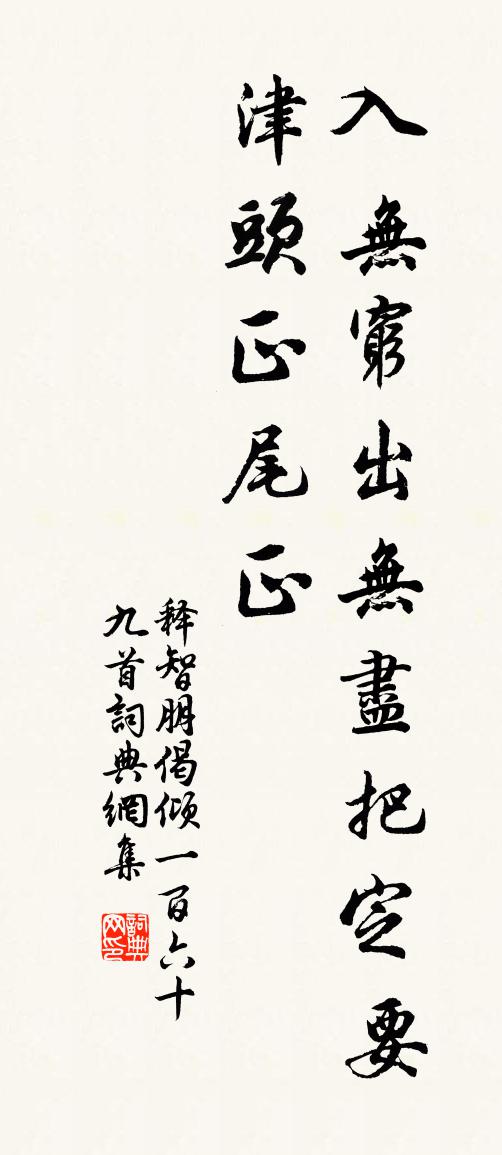 入無窮出無盡把定要
津頭正尾正
释智朋偈傾一百六十
九首詞典網集
詞典网印